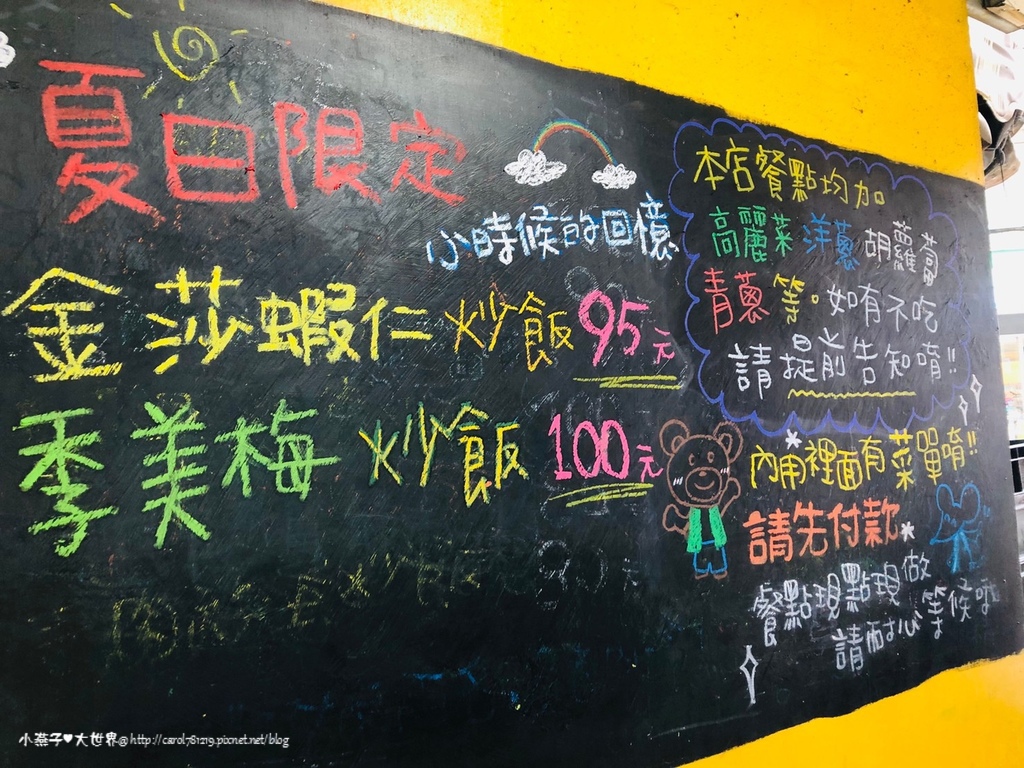 夏日限定
小時候的回憶
金莎蝦仁炒飯 95元
季美梅炒飯 100元
本店餐點均加
高麗菜 洋蔥 胡蘿蔔
青蔥 等。如有不吃
請提前告知唷!!
內用裡面有菜單唷!!
請先付款
餐點現點現做
請耐心等候啦
小燕子♥大世界@http://carol781219.pixnet.net/blog